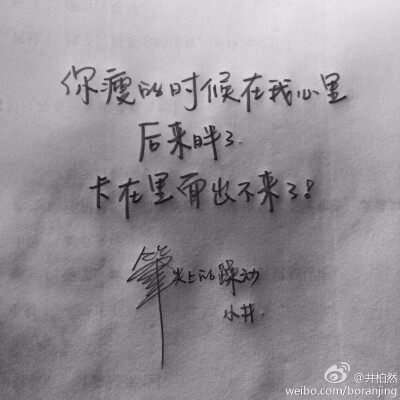 你瘦的时候在我心里
后来胖了.
卡在里面出不来了!
笔尖上的躁动
小井.
@井柏然
weibo.com/boranjing